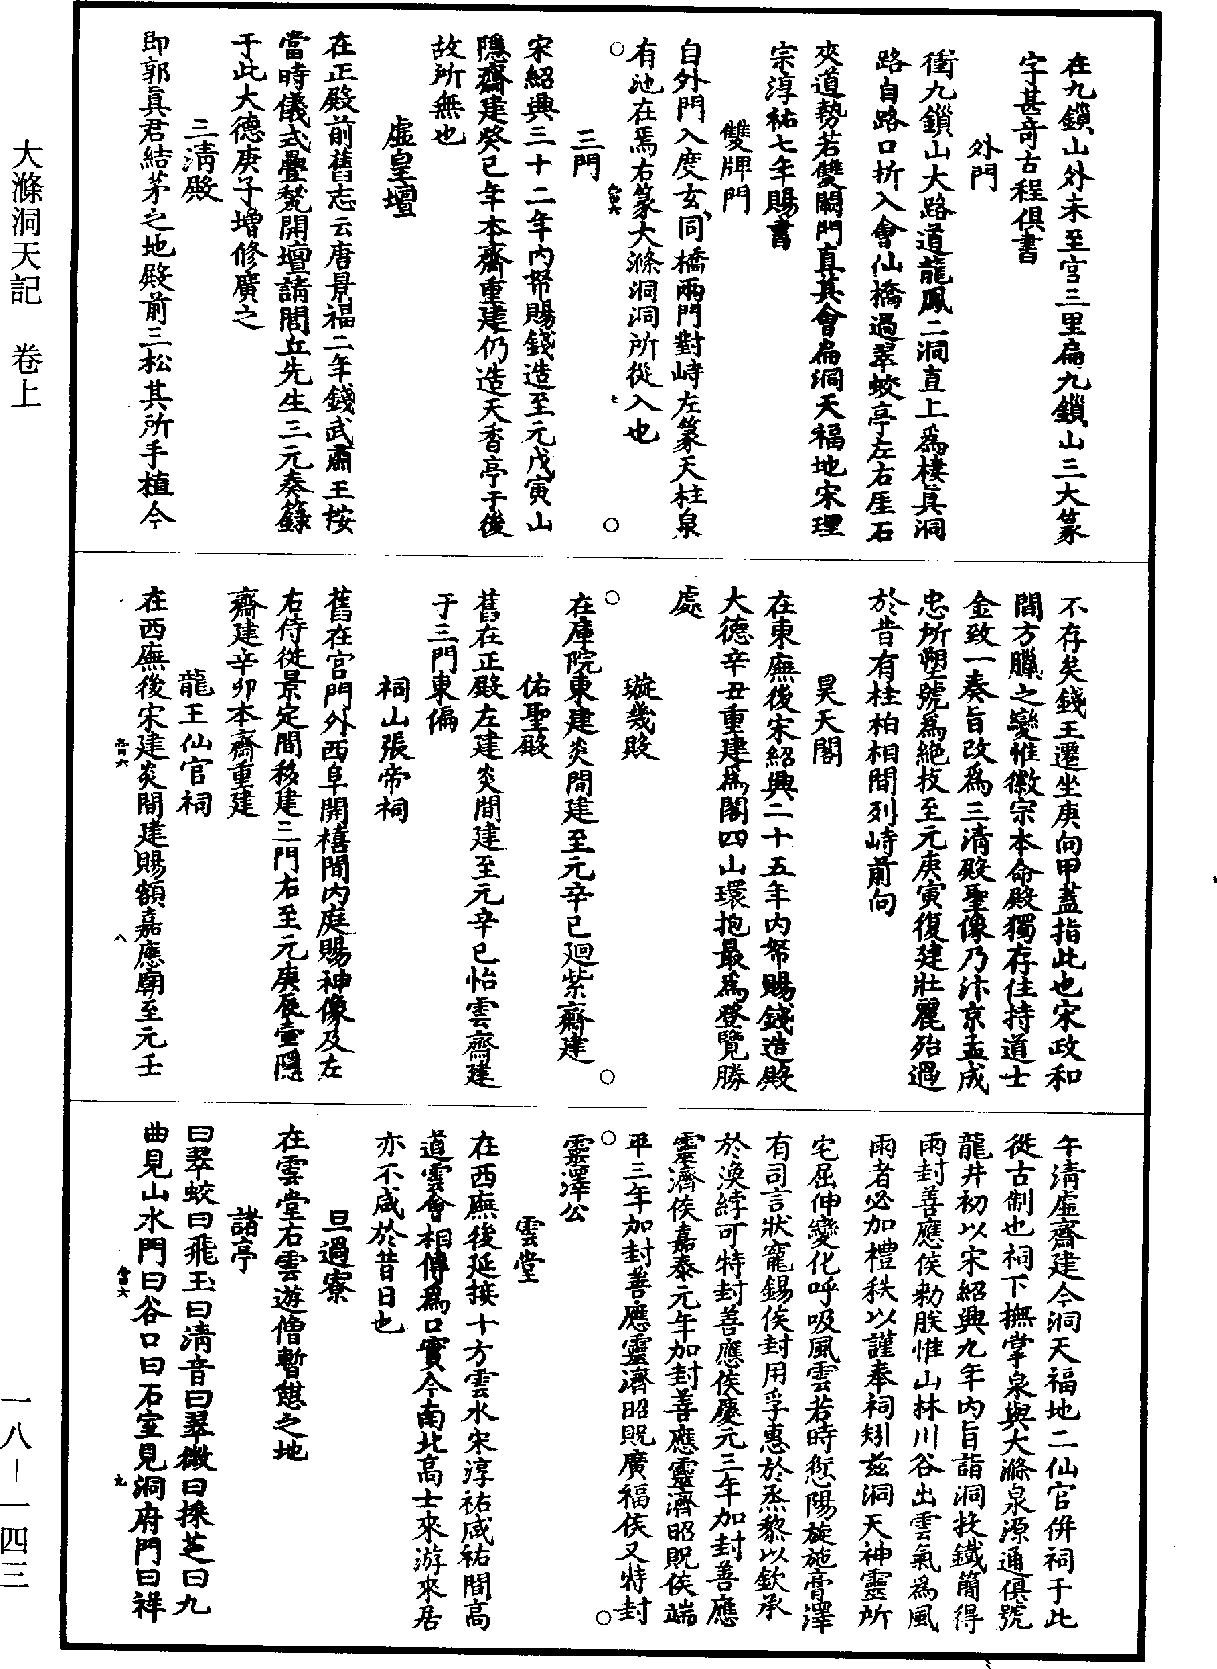 大滌洞天記　卷上
在九鎖山外未至宮三里扁九鎖山三大篆
字甚奇古程俱書
外門
衝九鎖山大路道龍鳳二洞直上爲棲真洞
路自路口折入會仙橋過翠蛟亭左右厓石
夾道勢若雙闕門真其會扁洞天福地宋理
宗淳祐七年賜書
雙牌門
自外門入度玄同橋兩門對峙左篆天柱泉
有池在焉右篆大滌洞洞所從入也
三門
宋紹興三十二年內帑賜錢造至元戊寅山
隱齋建癸巳年本齋重建仍造天香亭于後
故所無也
虛皇壇
在正殿前舊志云唐景福二年錢武肅王按
當時儀式疊甃開壇請閭丘先生三元奏籙
于此大德庚子增修廣之
三清殿
即郭真君結茅之地殿前三松其所手植今
不存矣錢王遷坐庚向甲蓋指此也宋政和
間方臘之變惟徽宗本命殿獨存住持道士
金致一奏旨改爲三清殿聖像乃汴京孟成
忠所塑號爲絕技至元庚寅復建壯麗殆過
於昔有桂柏相間列峙前向
昊天閣
在東廡後宋紹興二十五年內帑賜錢造殿
大德辛丑重建爲閣四山環抱最爲登覽勝
處
璇璣殿
在庫院東建炎間建至元辛巳迴紫齋建
佑聖殿
舊在正殿左建炎間建至元辛巳怡雲齋建
于三門東偏
祠山張帝祠
舊在宮門外西阜開禧間內庭賜神像及左
右侍從景定間移建三門右至元庚辰壺隱
齋建辛卯本齋重建
龍王仙官祠
在西廡後宋建炎間建賜額嘉應廟至元壬
午清虛齋建今洞天福地二仙官併祠于此
從古制也祠下撫掌泉與大滌泉源通俱號
龍井初以宋紹興九年內旨詣洞投鐵簡得
雨封善應侯勑朕惟山林川谷出雲氣爲風
雨者必加禮秩以謹奉祠矧茲洞天神靈所
宅屈伸變化呼吸風雲若時愆陽旋施膏澤
有司言狀寵錫侯封用孚惠於烝黎以欽承
於渙綍可特封善應侯慶元三年加封善應
靈濟侯嘉泰元年加封善應靈濟昭貺侯端
平三年加封善應靈濟昭貺廣福侯又特封
靈澤公
雲堂
在西廡後延接十方雲水宋淳祐咸祐間高
道雲會相傳爲口實今南北高士來游來居
亦不咸於昔日也
旦過寮
在雲堂右雲遊僧暫憇之地
諸亭
曰翠蛟曰飛玉曰清音曰翠微曰採芝曰九
曲見山水門曰谷口曰石室見洞府門曰祥
一八—一四三